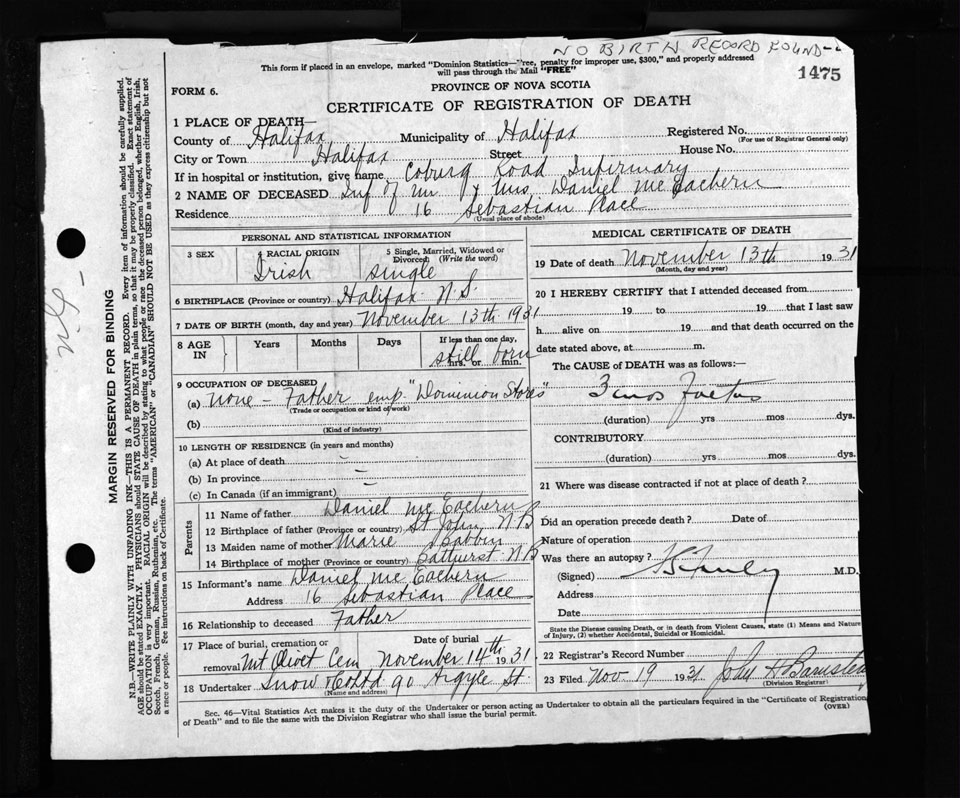 NO BIRTH RECORD FOUND--
This form if placed in an envelope, marked "Dominion Statistics—Free, penalty for improper use, $300," and properly addressed
will pass through the Mail "FREE"
1475
FORM 6.
PROVINCE OF NOVA SCOTIA
CERTIFICATE OF REGISTRATION OF DEATH
1 PLACE OF DEATH—
County of Halifax Municipality of Halifax Registered No.
(For use of Registrar General only)
City or Town Halifax Street House No.
If in hospital or institution, give name Coburg Road Infirmary
2 NAME OF DECEASED Inf of Mr & Mrs Daniel Mc Eachern
Residence 16 Sebastian Place
(Usual place of abode)
PERSONAL AND STATISTICAL INFORMATION
3 SEX
4 RACIAL ORIGIN Irish
5 Single, Married, Widowed or Divorced (Write the word) single
6 BIRTHPLACE (Province or country) Halifax N.S.
7 DATE OF BIRTH (month, day and year) November 13th 1931
8 AGE IN Years Months Days If less than one day, still born hrs. or min.
9 OCCUPATION OF DECEASED
(a) None - Father emp "Dominion Stores"
(Trade or occupation or kind of work)
(b)
(Kind of industry)
10 LENGTH OF RESIDENCE (in years and months)
(a) At place of death
(b) In province
(c) In Canada (if an immigrant)
Parents
11 Name of father Daniel Mc Eachern
12 Birthplace of father (Province or country) St John N.B
13 Maiden name of mother Marie Babbin
14 Birthplace of mother (Province or country) Bathurst N B
15 Informant's name Daniel Mc Eachern
Address 16 Sebastian Place
16 Relationship to deceased Father
17 Place of burial, cremation or removal Date of burial
Mt Olivet Cem November 14th 1931
18 Undertaker Snow & Co Ltd 90 Argyle St.
(Name and address)
MEDICAL CERTIFICATE OF DEATH
19 Date of death November 13th 1931
(Month, day and year)
20 I HEREBY CERTIFY that I attended deceased from
19 to 19 that I last saw
h alive on 19 and that death occurred on the
date stated above, at m.
The CAUSE of DEATH was as follows:—
3 mos Foetus
(duration) yrs mos dys.
CONTRIBUTORY
(duration) yrs mos dys.
21 Where was disease contracted if not at place of death?
Did an operation precede death? Date of
Nature of operation
Was there an autopsy?
(Signed) M.D.
Address
Date
State the Disease causing Death, or in death from Violent Causes, state (1) Means and Nature
of Injury, (2) whether Accidental, Suicidal or Homicidal.
22 Registrar's Record Number
23 Filed Nov 19 1931 John H Barnstead
(Division Registrar)
Sec. 46—Vital Statistics Act makes it the duty of the Undertaker or person acting as Undertaker to obtain all the particulars required in the "Certificate of Registration
of Death" and to file the same with the Division Registrar who shall issue the burial permit.
(OVER)
MARGIN RESERVED FOR BINDING
N.B.—WRITE PLAINLY WITH UNFADING INK—THIS IS A PERMANENT RECORD. Every item of information should be carefully supplied.
AGE should be stated EXACTLY. PHYSICIANS should STATE CAUSE OF DEATH in plain terms, so that it may be properly classified. Exact statement of
OCCUPATION is very important. RACIAL ORIGIN will be described by stating to what people or race the deceased person belonged, whether English, Irish,
Scotch, French, German, Russian, Ruthenian, etc. The terms "AMERICAN" or "CANADIAN" SHOULD NOT BE USED as they express citizenship but not
a race or people. Fee instructions on back of Certificate.